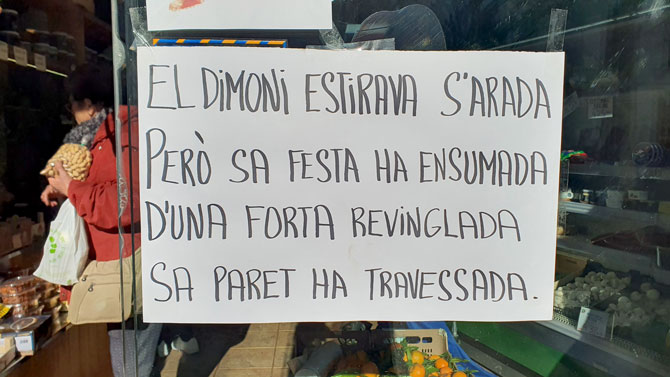 EL DIMONI ESTIRAVA S'ARADA
PERÒ SA FESTA HA ENSUMADA
D'UNA FORTA REVINGLADA
SA PARET HA TRAVESSADA.